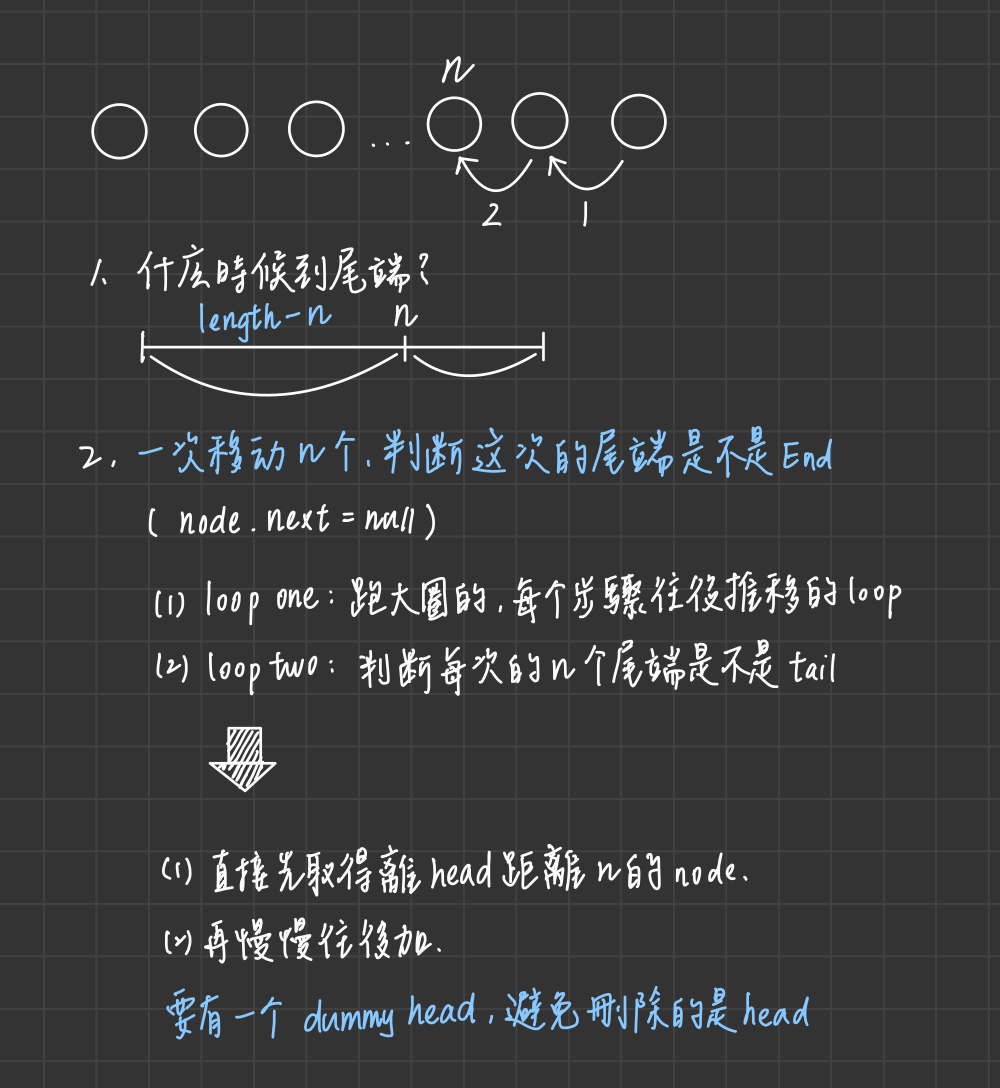 n
...
2 1
1. 什庅時候到尾端?
length-n n
2. 一次移动n个,判断这次的尾端是不是End
( node.next = null )
(1) loop one: 跑大圈的,每个步驟往後推移的loop
(2) loop two: 判断每次的n个尾端是不是tail
(1) 直接先取得離head距離n的node.
(2) 再慢慢往後加.
要有一个 dummy head,避免刪除的是head